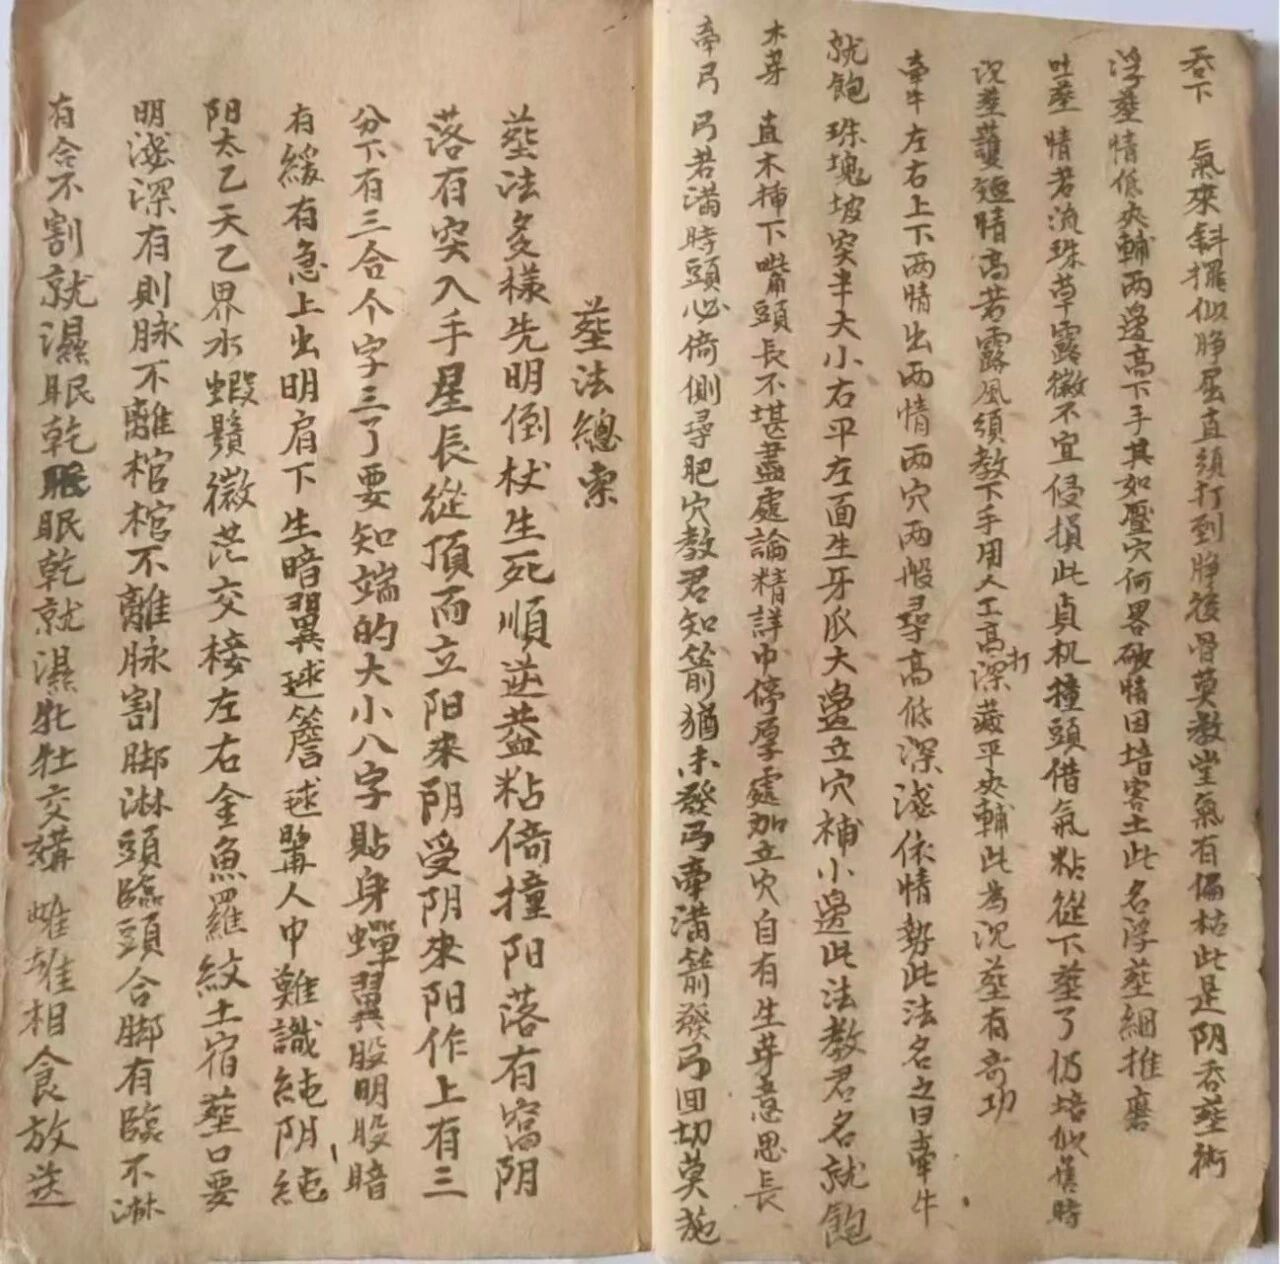 吞下 氣來斜擺似睁屈直須打到睁後骨莫教堂氣有偏枯此是阴吞塟術
浮塟情低夾輔兩邊高下手其如壓穴何畧破情因培客土此名浮塟細推磨
吐塟 情若流珠草露微不宜侵損此貞机撞頭借氣粘從下塟了仍培似舊時
沉塟護短情高若露風須教下手用人工高打深藏平夾輔此為沉塟有奇功
牽牛左右上下兩情出兩情兩穴兩般尋高低深淺依情勢此法名之曰牽牛
就飽 珠塊坡突半大小右平左面生牙爪大邊立穴補小邊此法教君名就飽
木芽 直木揷下嘴頭長不堪盡處論精詳巾停厚處加立穴自有生芽意思長
牽弓 弓若满時頭必倚側尋肥穴教君知箭猶未發弓牽满箭發弓回切莫施
塟法總索
塟法多樣先明倒杖生死順逆葢粘倚撞阳落有窩阴
落有突入手星長從頂而立阳來阴受阴來阳作上有三
分下有三合个字三了要知端的大小八字貼身蟬翼股明股暗
有緩有急上出明肩下生暗翼毬簷毬髯人巾難識純阴純
阳太乙天乙界水蝦鬚微茫交接左右金魚羅紋土宿塟口要
明淺深有則脉不離棺棺不離脉割脚淋頭臨頭合脚有臨不淋
有合不割就濕眠乾眠乾就濕牝牡交媾雌雄相食放送